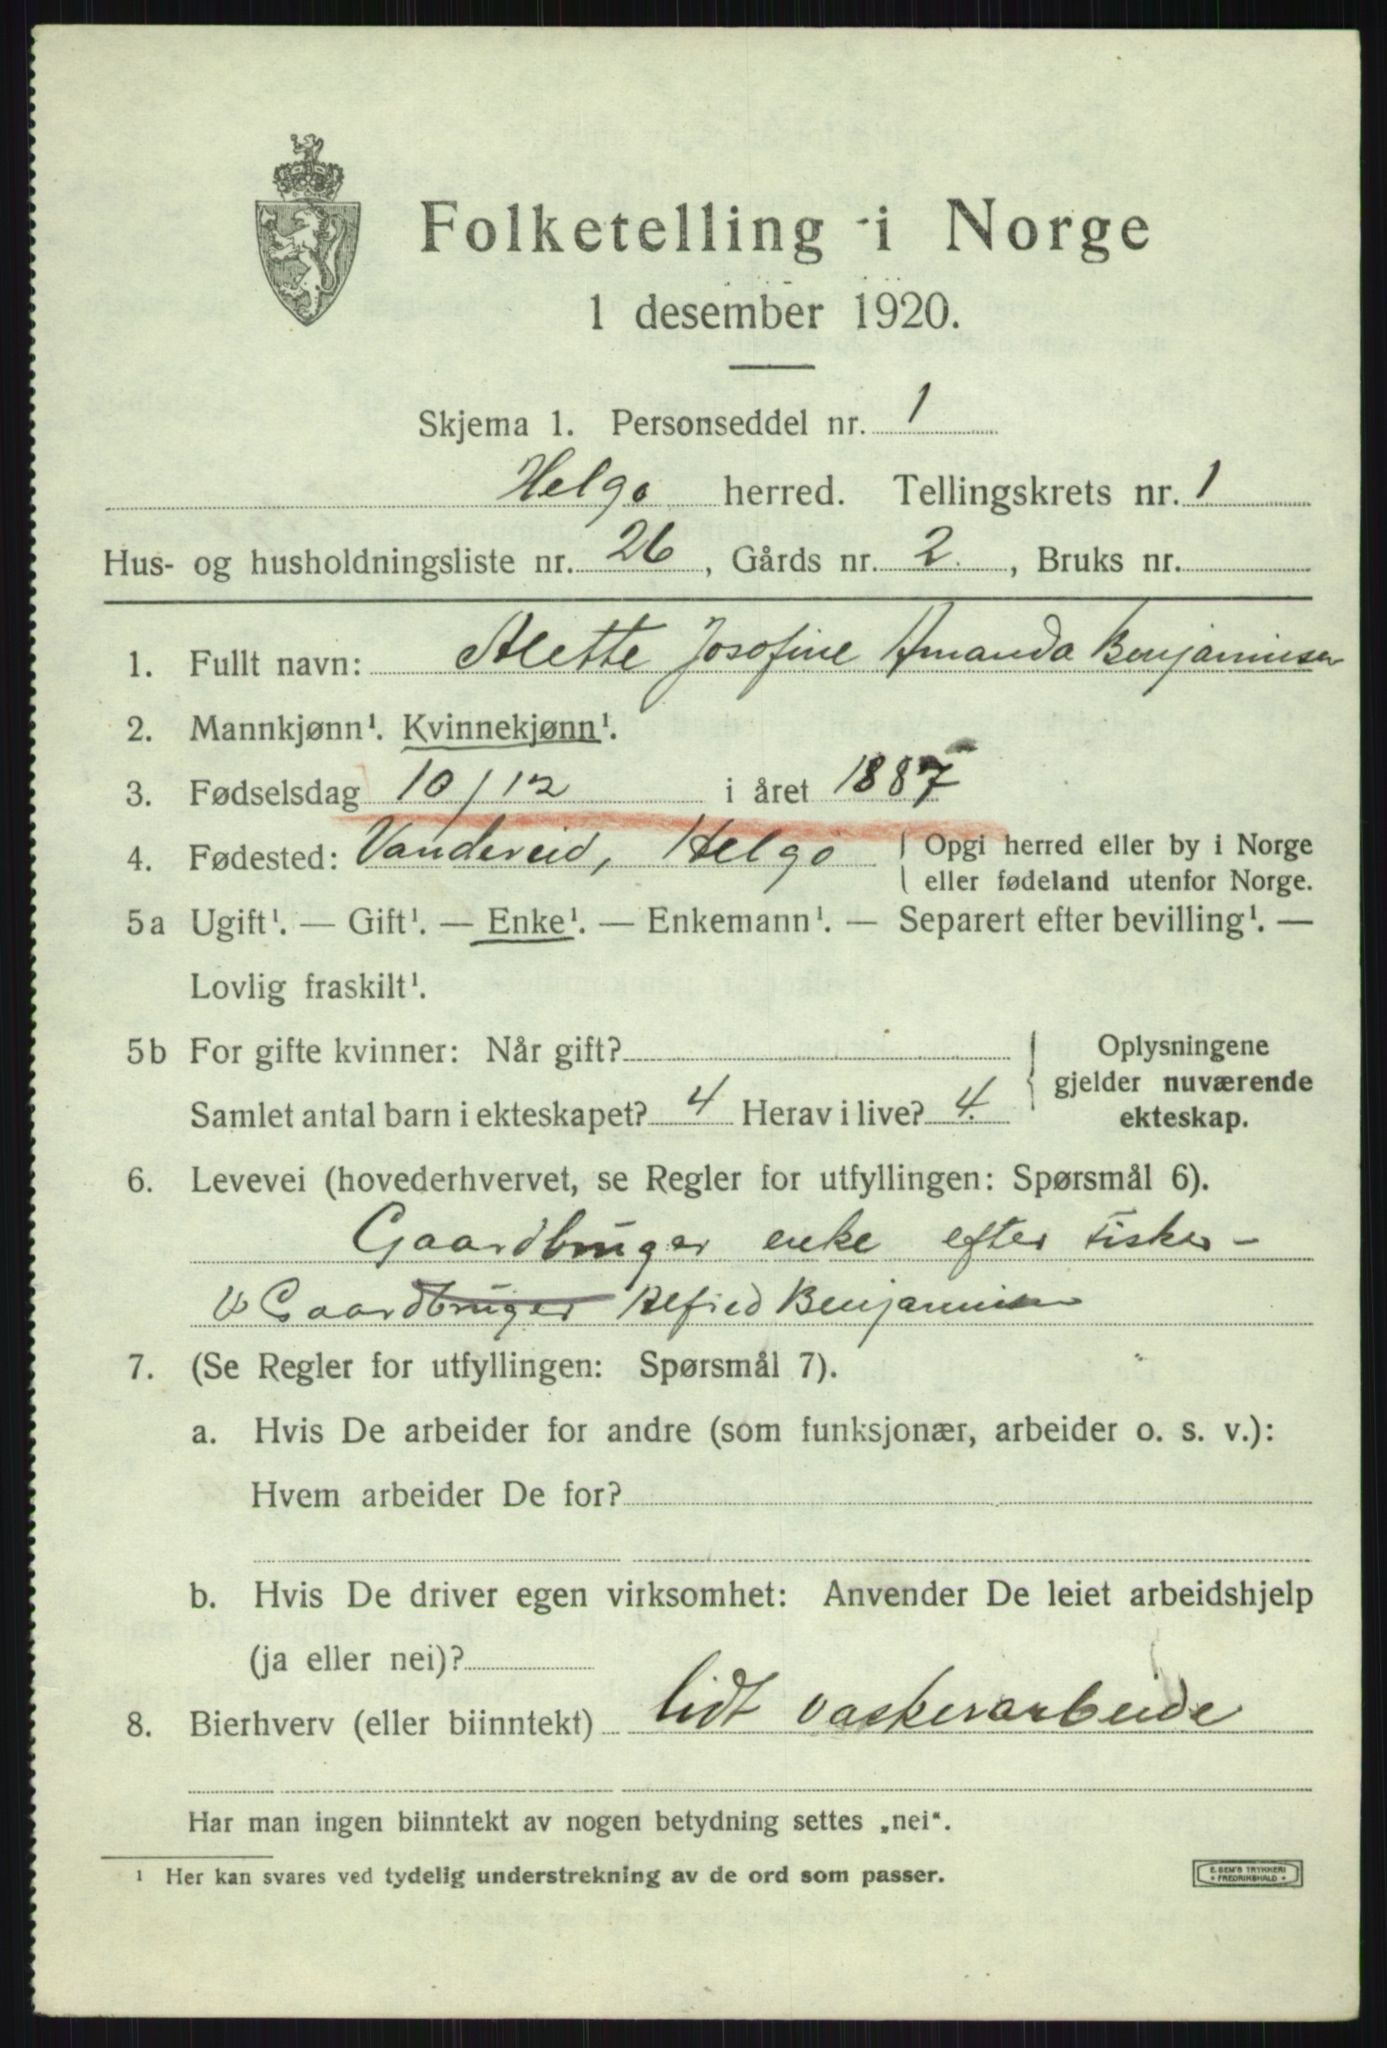 Folketelling i Norge
1 desember 1920.
Skjema 1. Personseddel nr. 1
Helgø herred. Tellingskrets nr. 1
Hus- og husholdningsliste nr. 26, Gårds nr. 2, Bruks nr.
1. Fullt navn: Alette Josofine Amanda Benjaminsen
2. Mannkjønn¹. Kvinnekjønn¹.
3. Fødselsdag 10/12 i året 1887
4. Fødested: Vandereid, Helgø { Opgi herred eller by i Norge
eller fødeland utenfor Norge.
5a Ugift¹. — Gift¹. — Enke¹. — Enkemann¹. — Separert efter bevilling¹. —
Lovlig fraskilt¹.
5b For gifte kvinner: Når gift? { Oplysningene
gjelder nuværende
Samlet antal barn i ekteskapet? 4 Herav i live? 4. ekteskap.
6. Levevei (hovederhvervet, se Regler for utfyllingen: Spørsmål 6).
Gaardbruger enke efter Fisker-
Gaardbruger Alfred Benjaminsen
7. (Se Regler for utfyllingen: Spørsmål 7).
a. Hvis De arbeider for andre (som funksjonær, arbeider o. s. v.):
Hvem arbeider De for?
b. Hvis De driver egen virksomhet: Anvender De leiet arbeidshjelp
(ja eller nei)?
8. Bierhverv (eller biinntekt) lidt vaskerarbeide
Har man ingen biinntekt av nogen betydning settes „nei“.
¹ Her kan svares ved tydelig understrekning av de ord som passer.
E. SEM'S TRYKKERI
FREDRIKSHALD